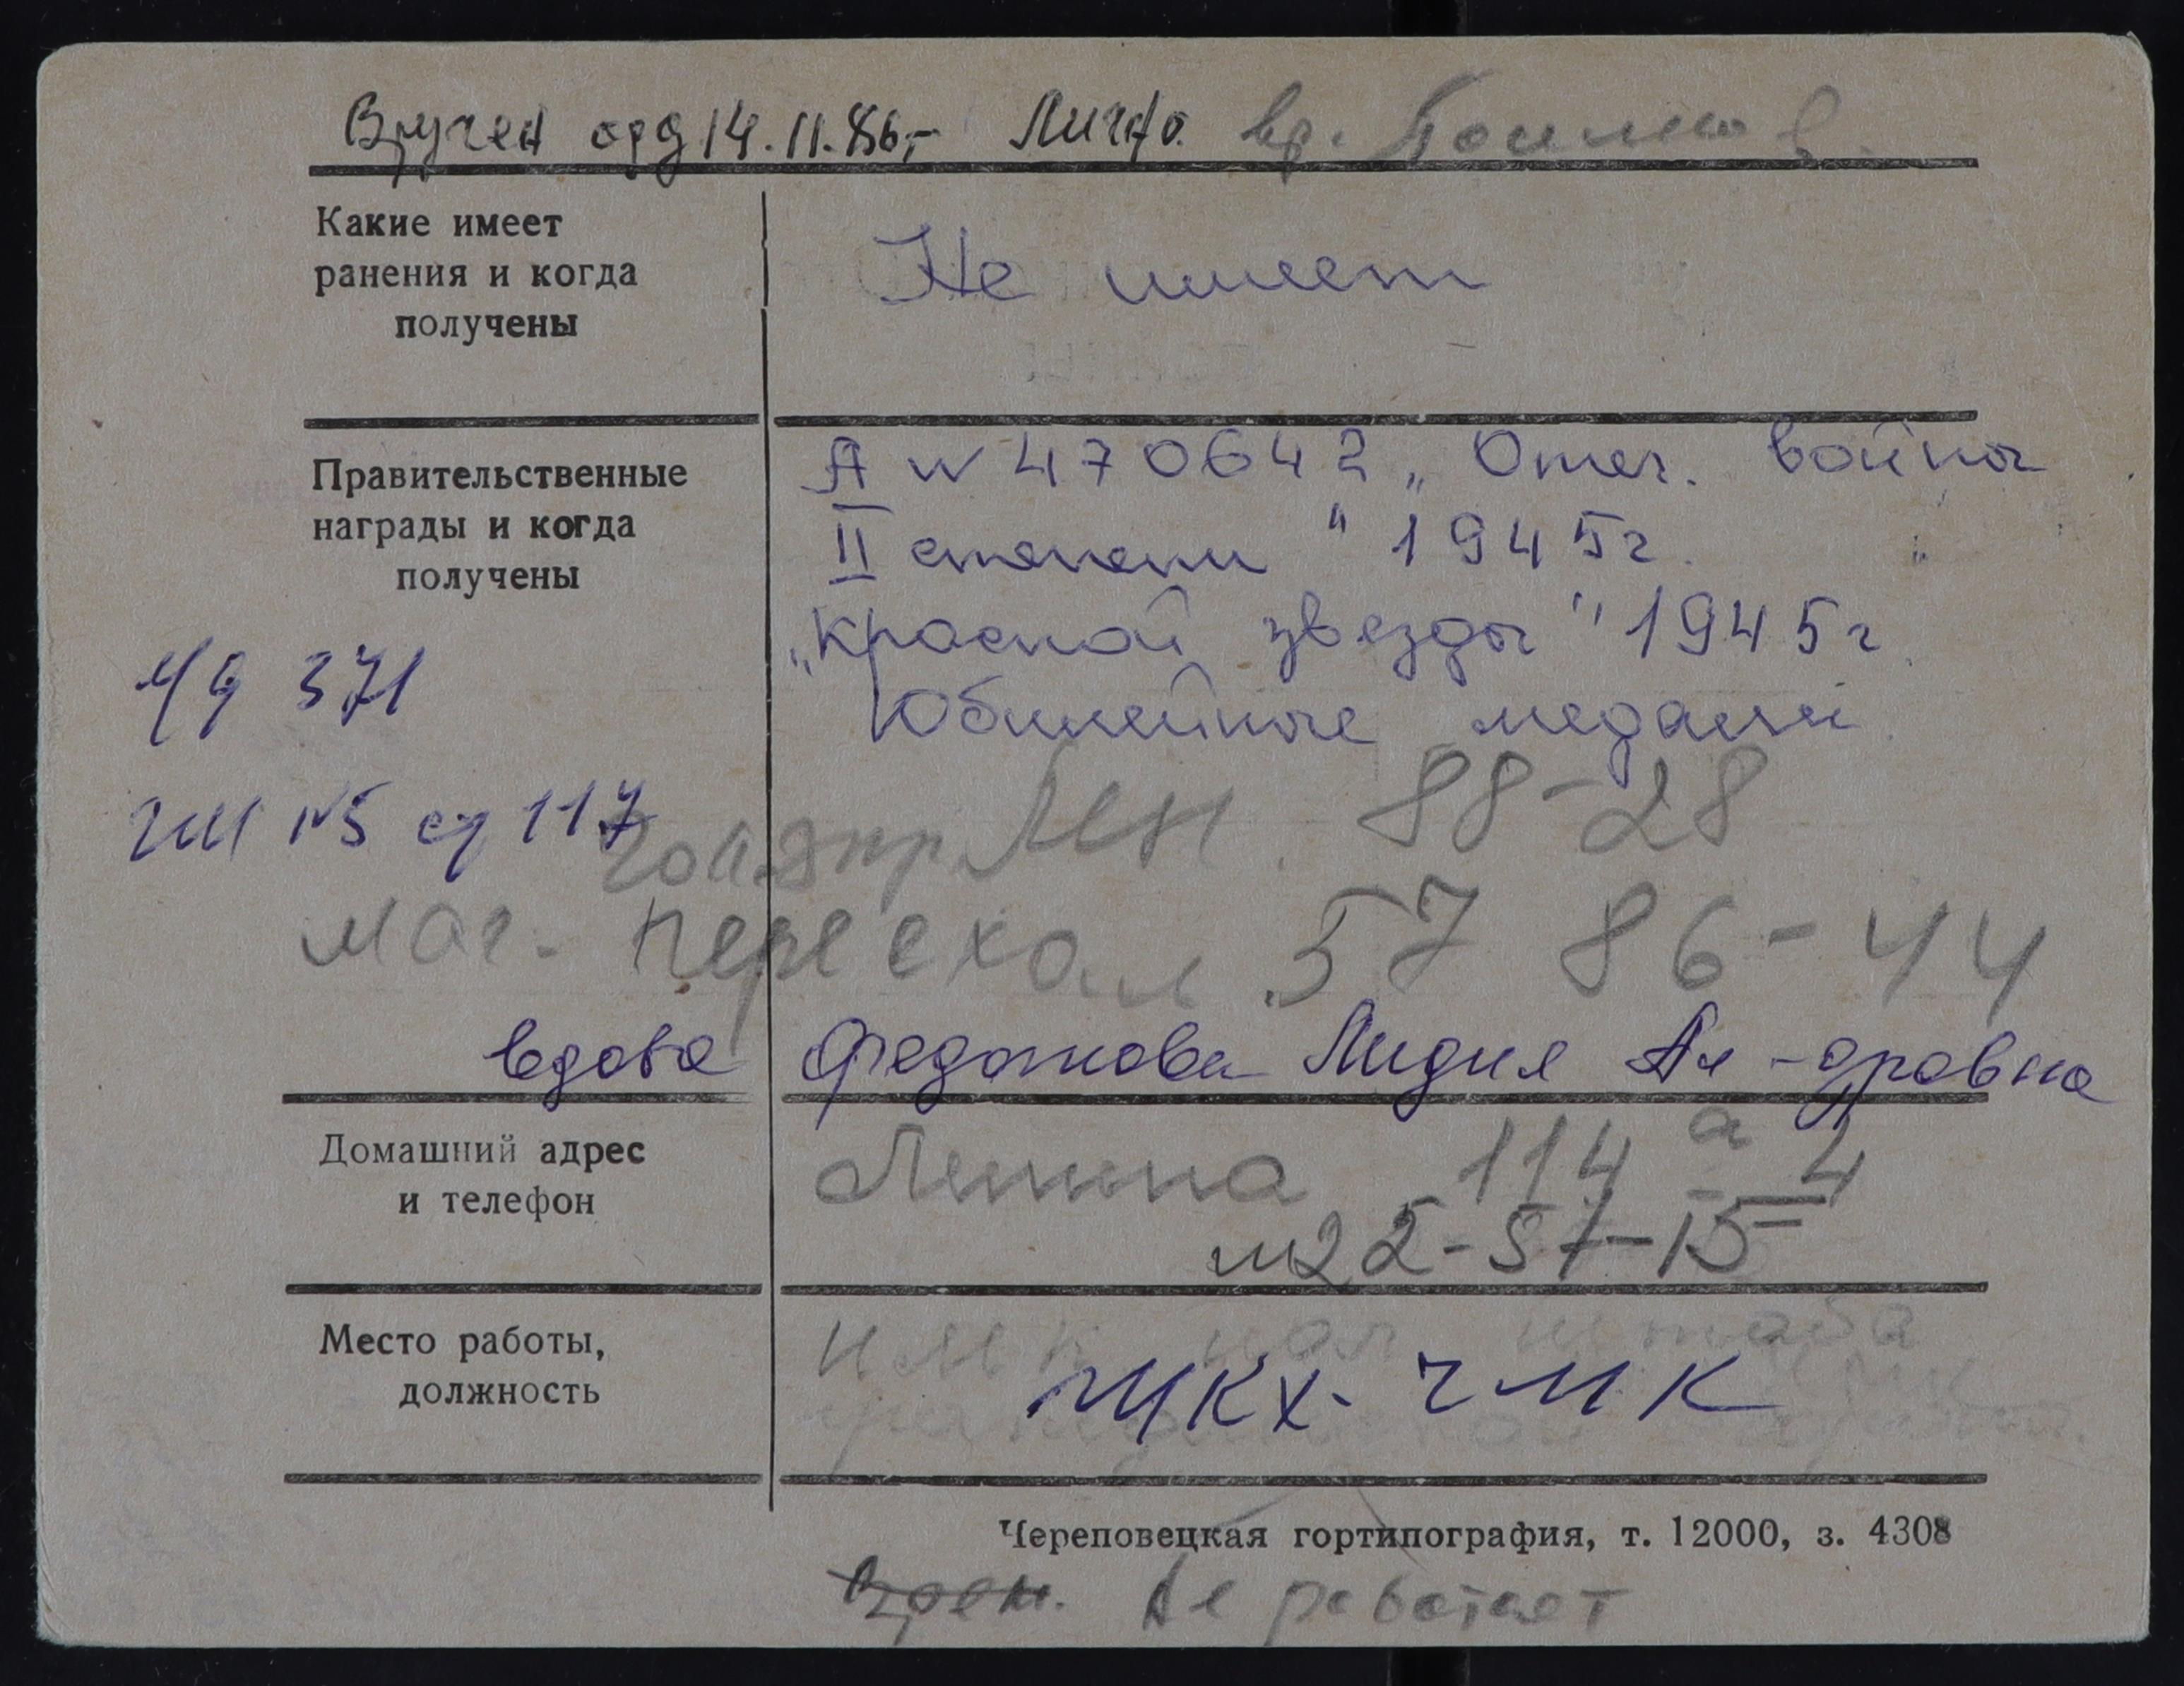 Вручен орд 14.11.86,- Лично. вр.
Какие имеет
ранения и когда
получены
Не имеет
Правительственные
награды и когда
получены
А № 470642 „Отеч. войны
II степени" 1945г.
„Красной звезды" 1945г.
Юбилейные медали
УД 371
N5 ед 117
88-28
маг. переехал 57 86-44
вдова Федотова Лидия Ал-дровна
Домашний адрес
и телефон
Ленина 114 а - 4
т 22-57-15
Место работы,
должность
нач штаба
ЖКХ - ЧМК
гражданской
Череповецкая гортипография, т. 12000, з. 4308
Врем. Не работает